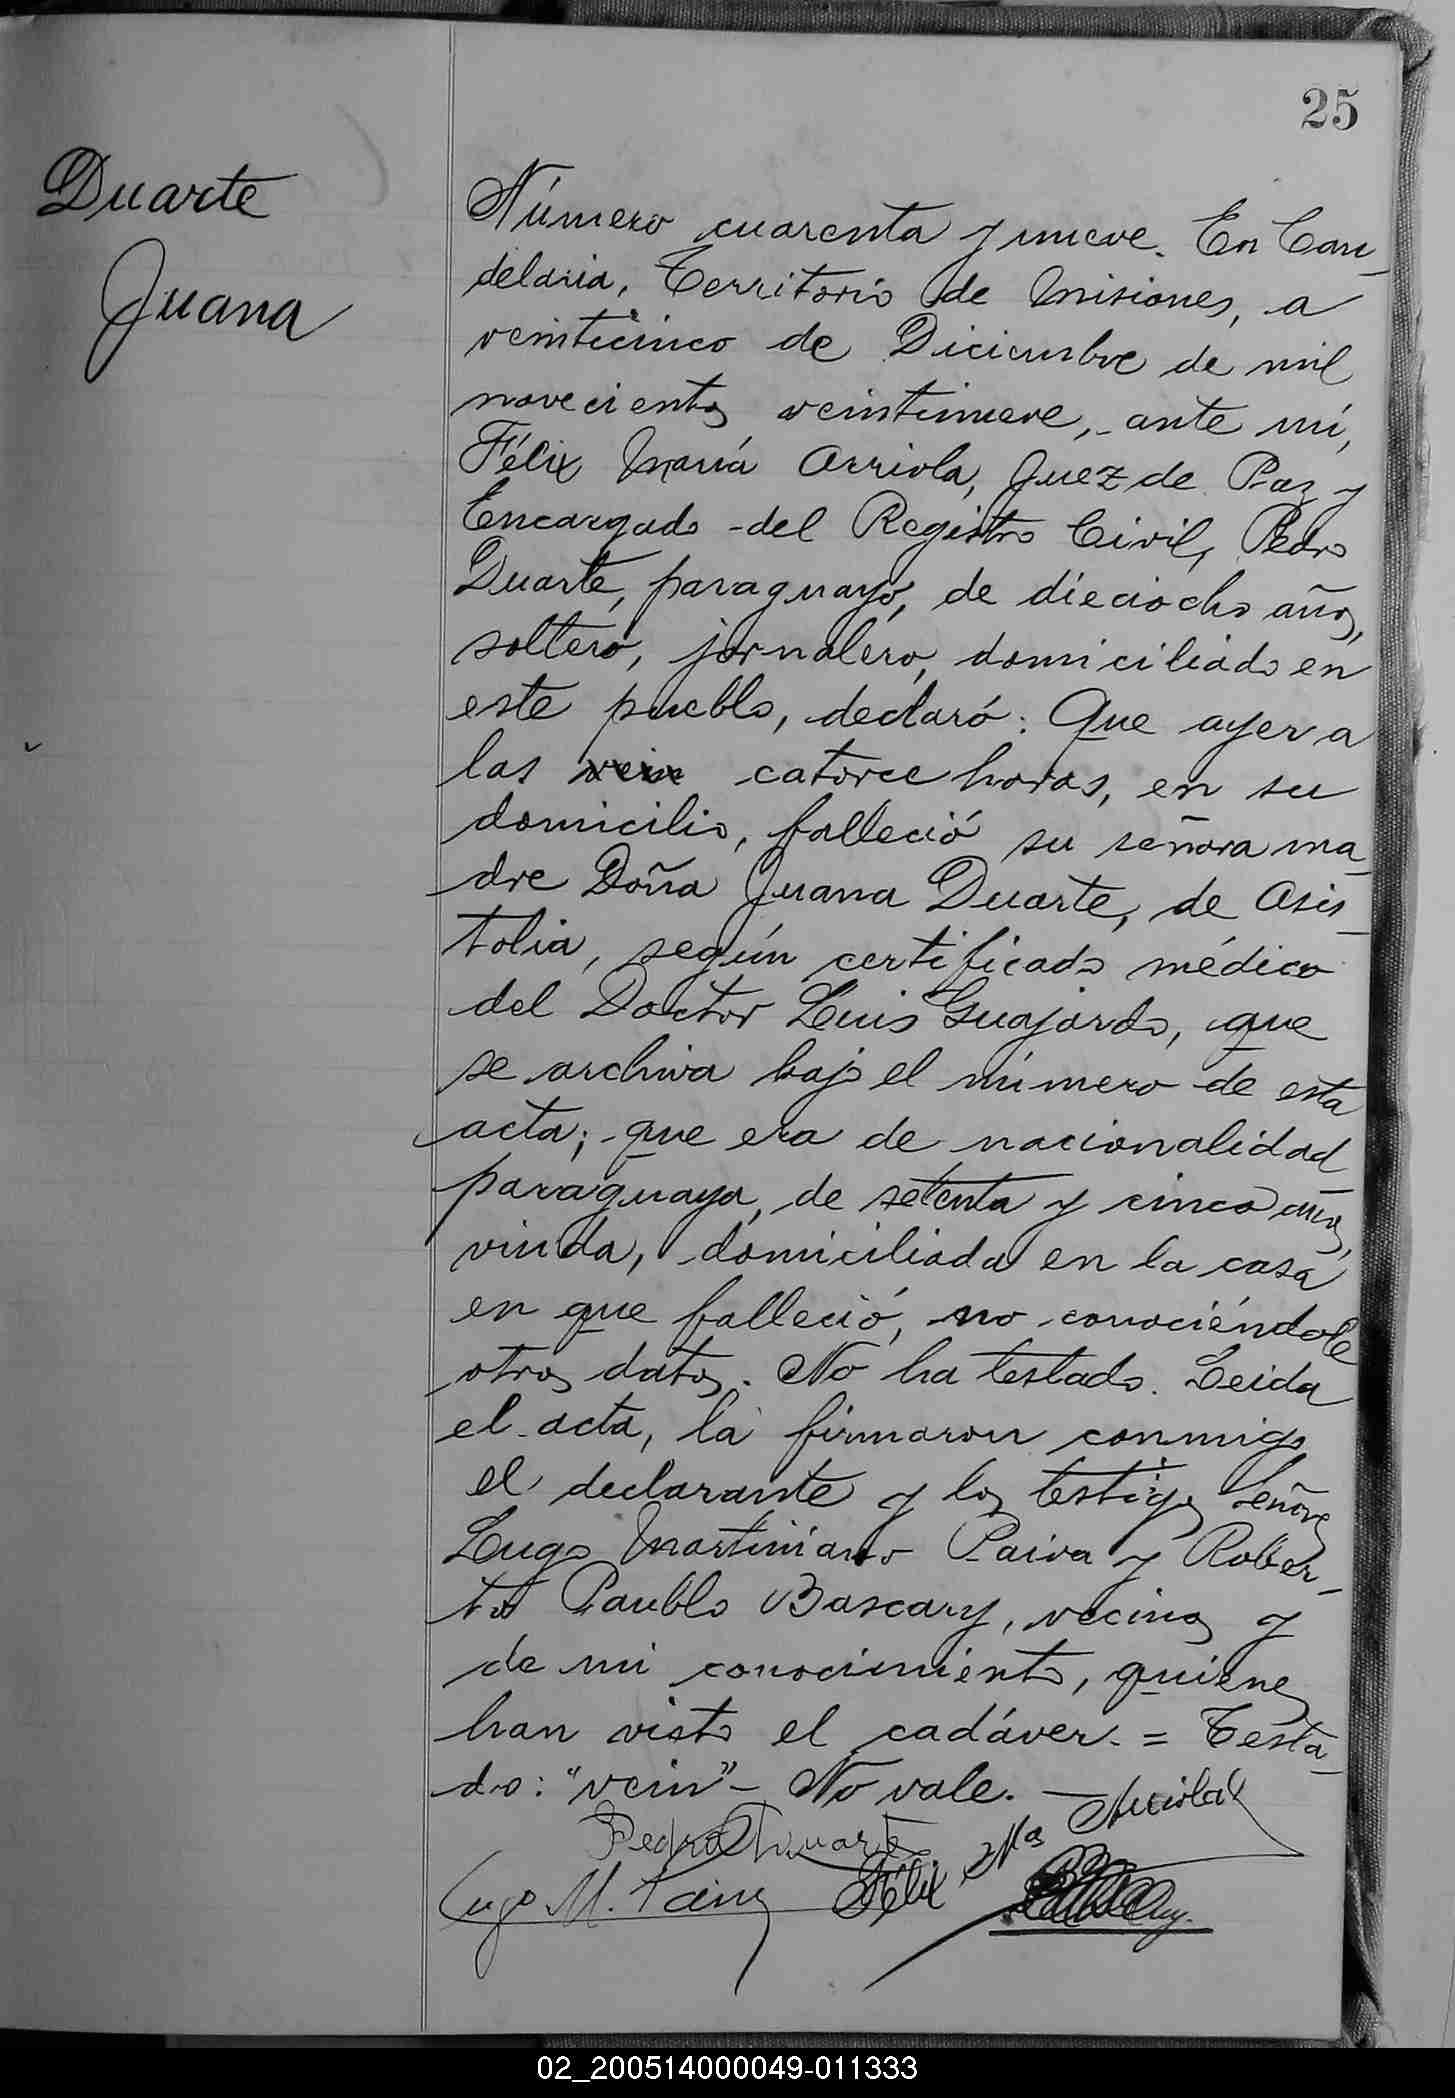 25
Duarte
Juana
Número cuarenta y nueve. En Can-
delaria, Territorio de Misiones, a
veinticinco de Diciembre de mil
novecientos veintinueve, ante mí,
Félix María Arriola, Juez de Paz y
Encargado del Registro Civil, Pedro
Duarte, paraguayo, de dieciocho años,
soltero, jornalero, domiciliado en
este pueblo, declaró: Que ayer a
las vein catorce horas, en su
domicilio, falleció su señora ma-
dre Doña Juana Duarte, de Asis-
tolia, según certificado médico
del Doctor Luis Guajardo, que
se archiva bajo el número de esta
acta; que era de nacionalidad
paraguaya, de setenta y cinco años,
viuda, domiciliada en la casa
en que falleció, no conociéndole
otros datos. No ha testado. Leida
el acta, la firmaron conmigo
el declarante y los testigos Señores
Lugo Martiniano Paiva y Rober-
to Paublo Bascary, vecinos y
de mi conocimiento, quienes
han visto el cadáver. = Testa-
do: "vein" - No vale. —
Pedro Duarte
Félix Mª Arriola
Lugo M. Paiva
02_200514000049-011333